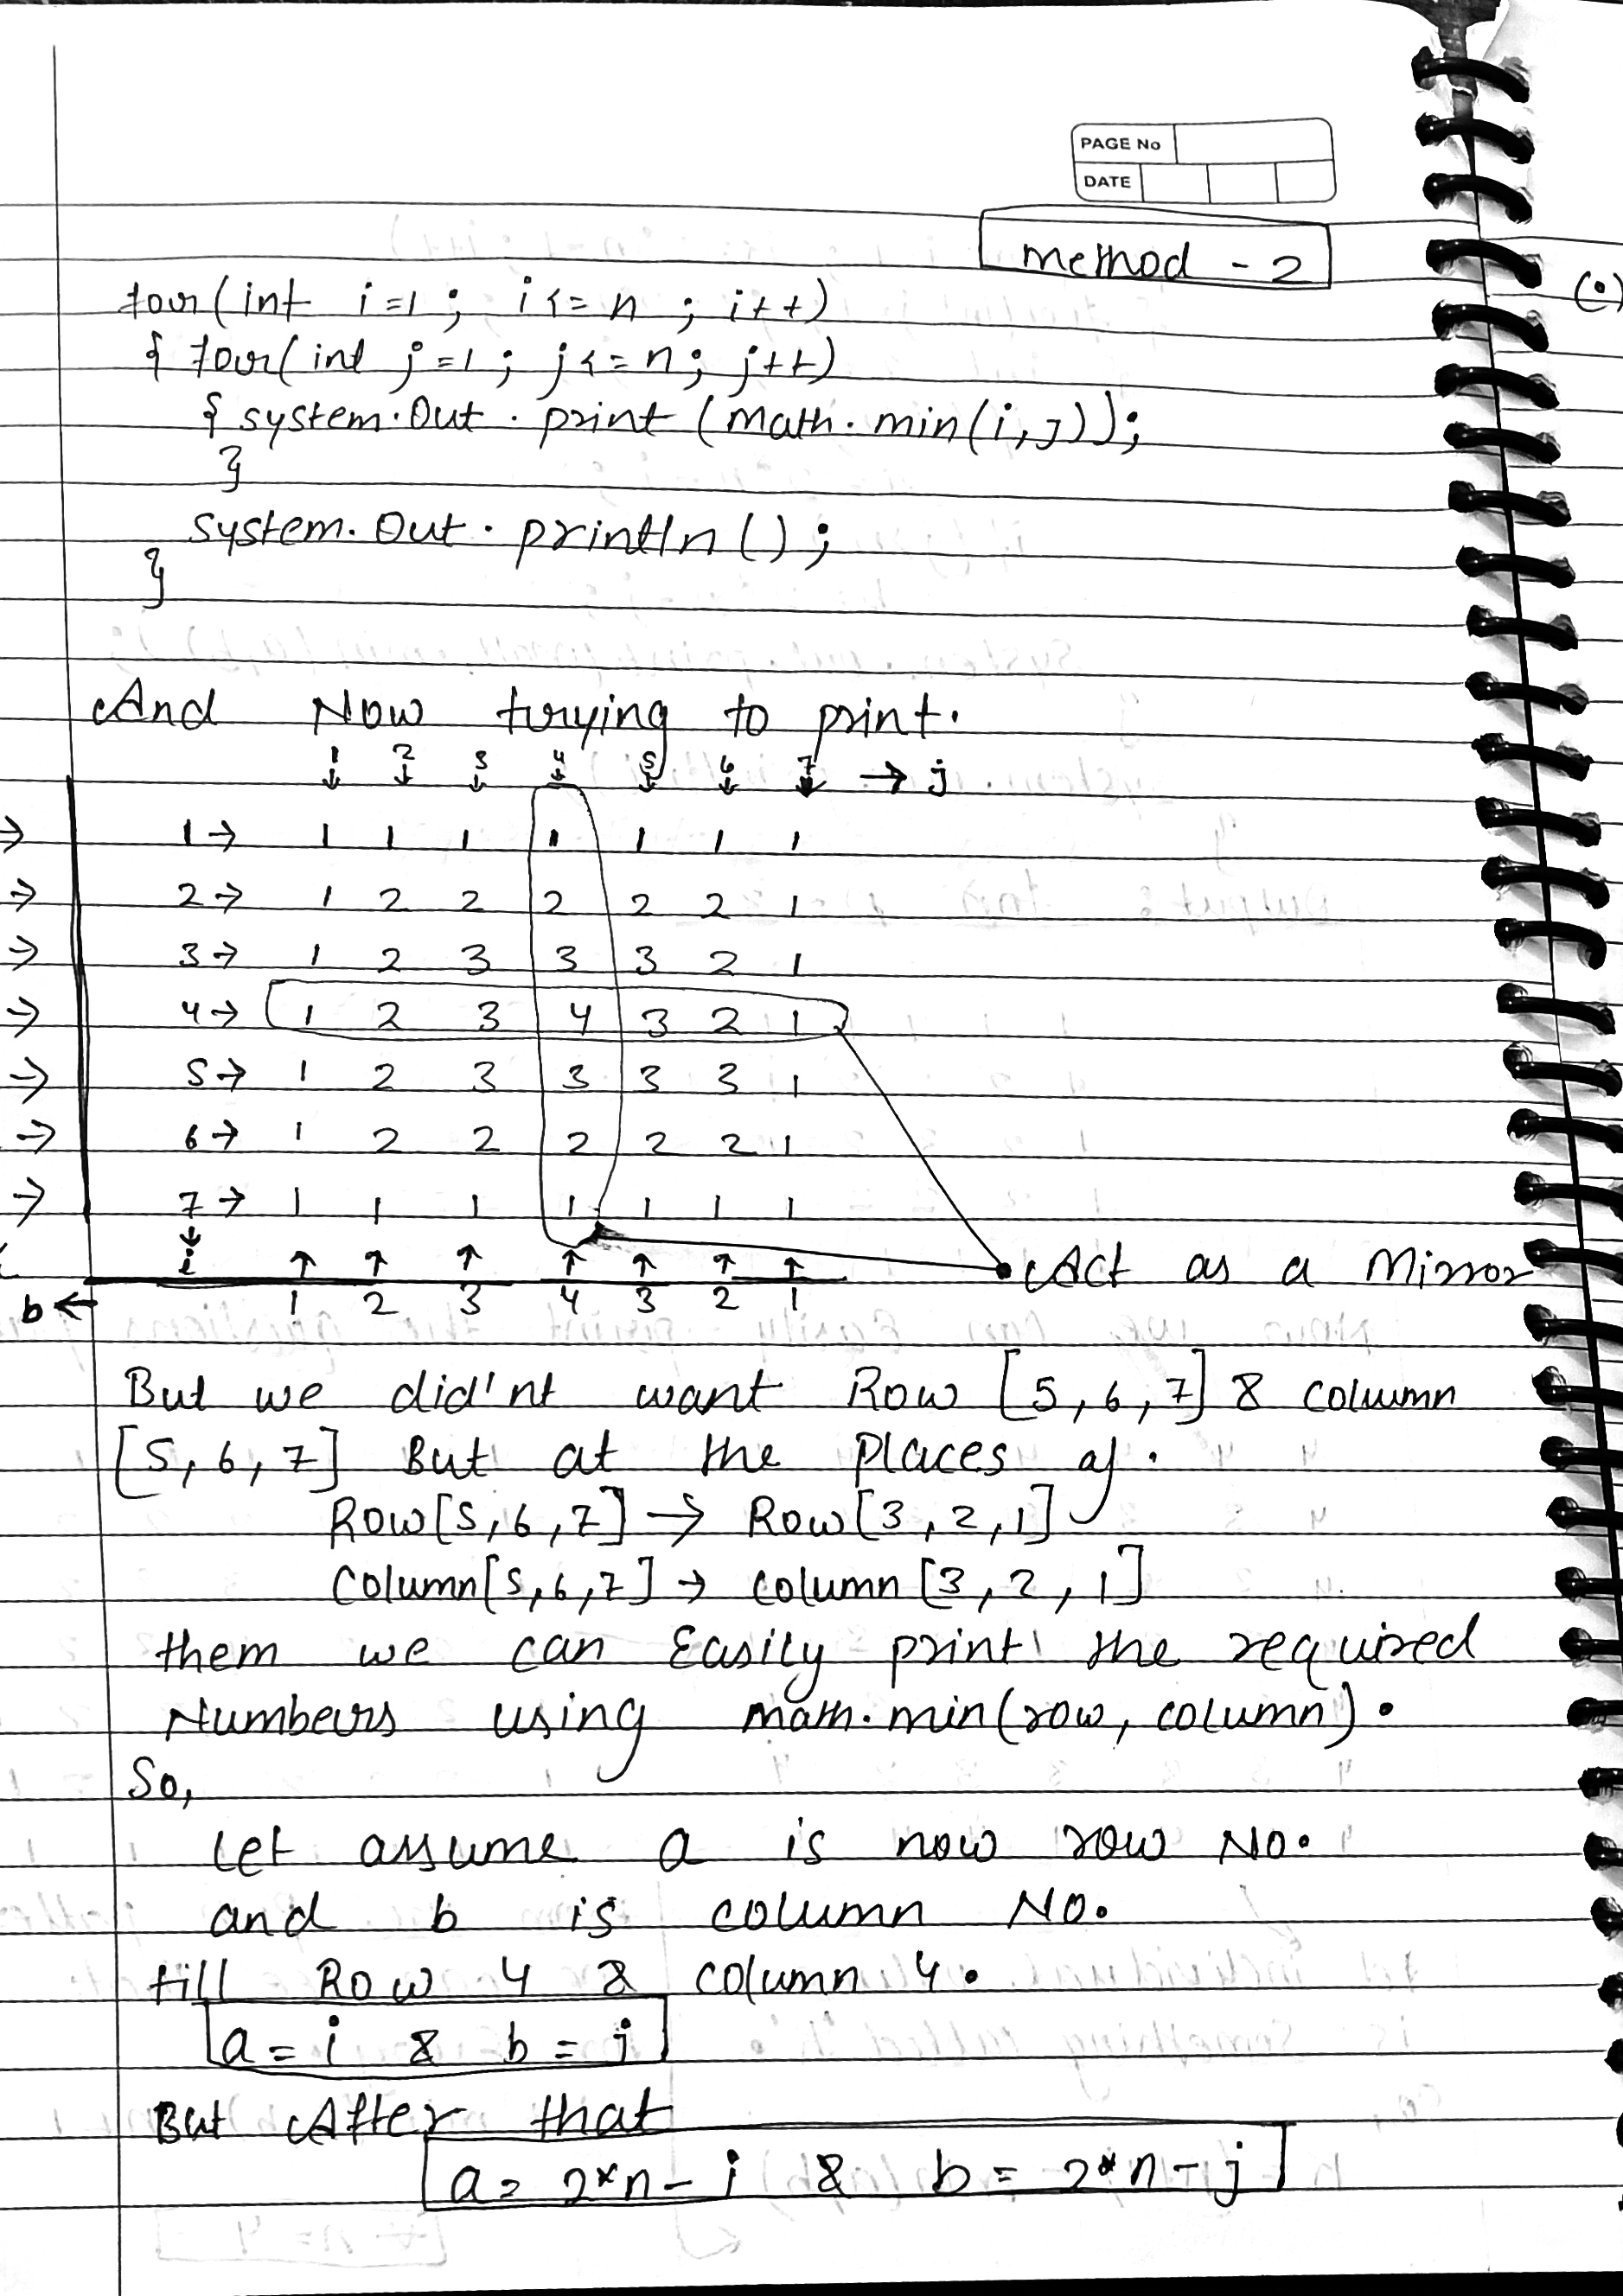 PAGE No
DATE
method - 2
for(int i=1; i<=n ; i++)
{ for(int j=1; j<=n; j++)
{ system.Out.print (math.min(i,j));
}
system.Out.println();
}
And Now trying to print.
1 2 3 4 5 6 7 → j
→ 1→ 1 1 1 1 1 1 1
→ 2→ 1 2 2 2 2 2 1
→ 3→ 1 2 3 3 3 2 1
→ 4→ 1 2 3 4 3 2 1
→ 5→ 1 2 3 3 3 3 1
→ 6→ 1 2 2 2 2 2 1
→ 7→ 1 1 1 1 1 1 1
i ↑ ↑ ↑ ↑ ↑ ↑ ↑ Act as a Mirror
b ← 1 2 3 4 3 2 1
But we did'nt want Row [5,6,7] & column
[5,6,7] But at the places of.
Row[5,6,7] → Row[3,2,1]
Column[5,6,7] → column[3,2,1]
them we can Easily print the required
Numbers using math.min(row, column).
So,
let assume a is now row NO.
and b is column NO.
till Row 4 & column 4.
a = i & b = j
But After that
a = 2*n - i & b = 2*n - j